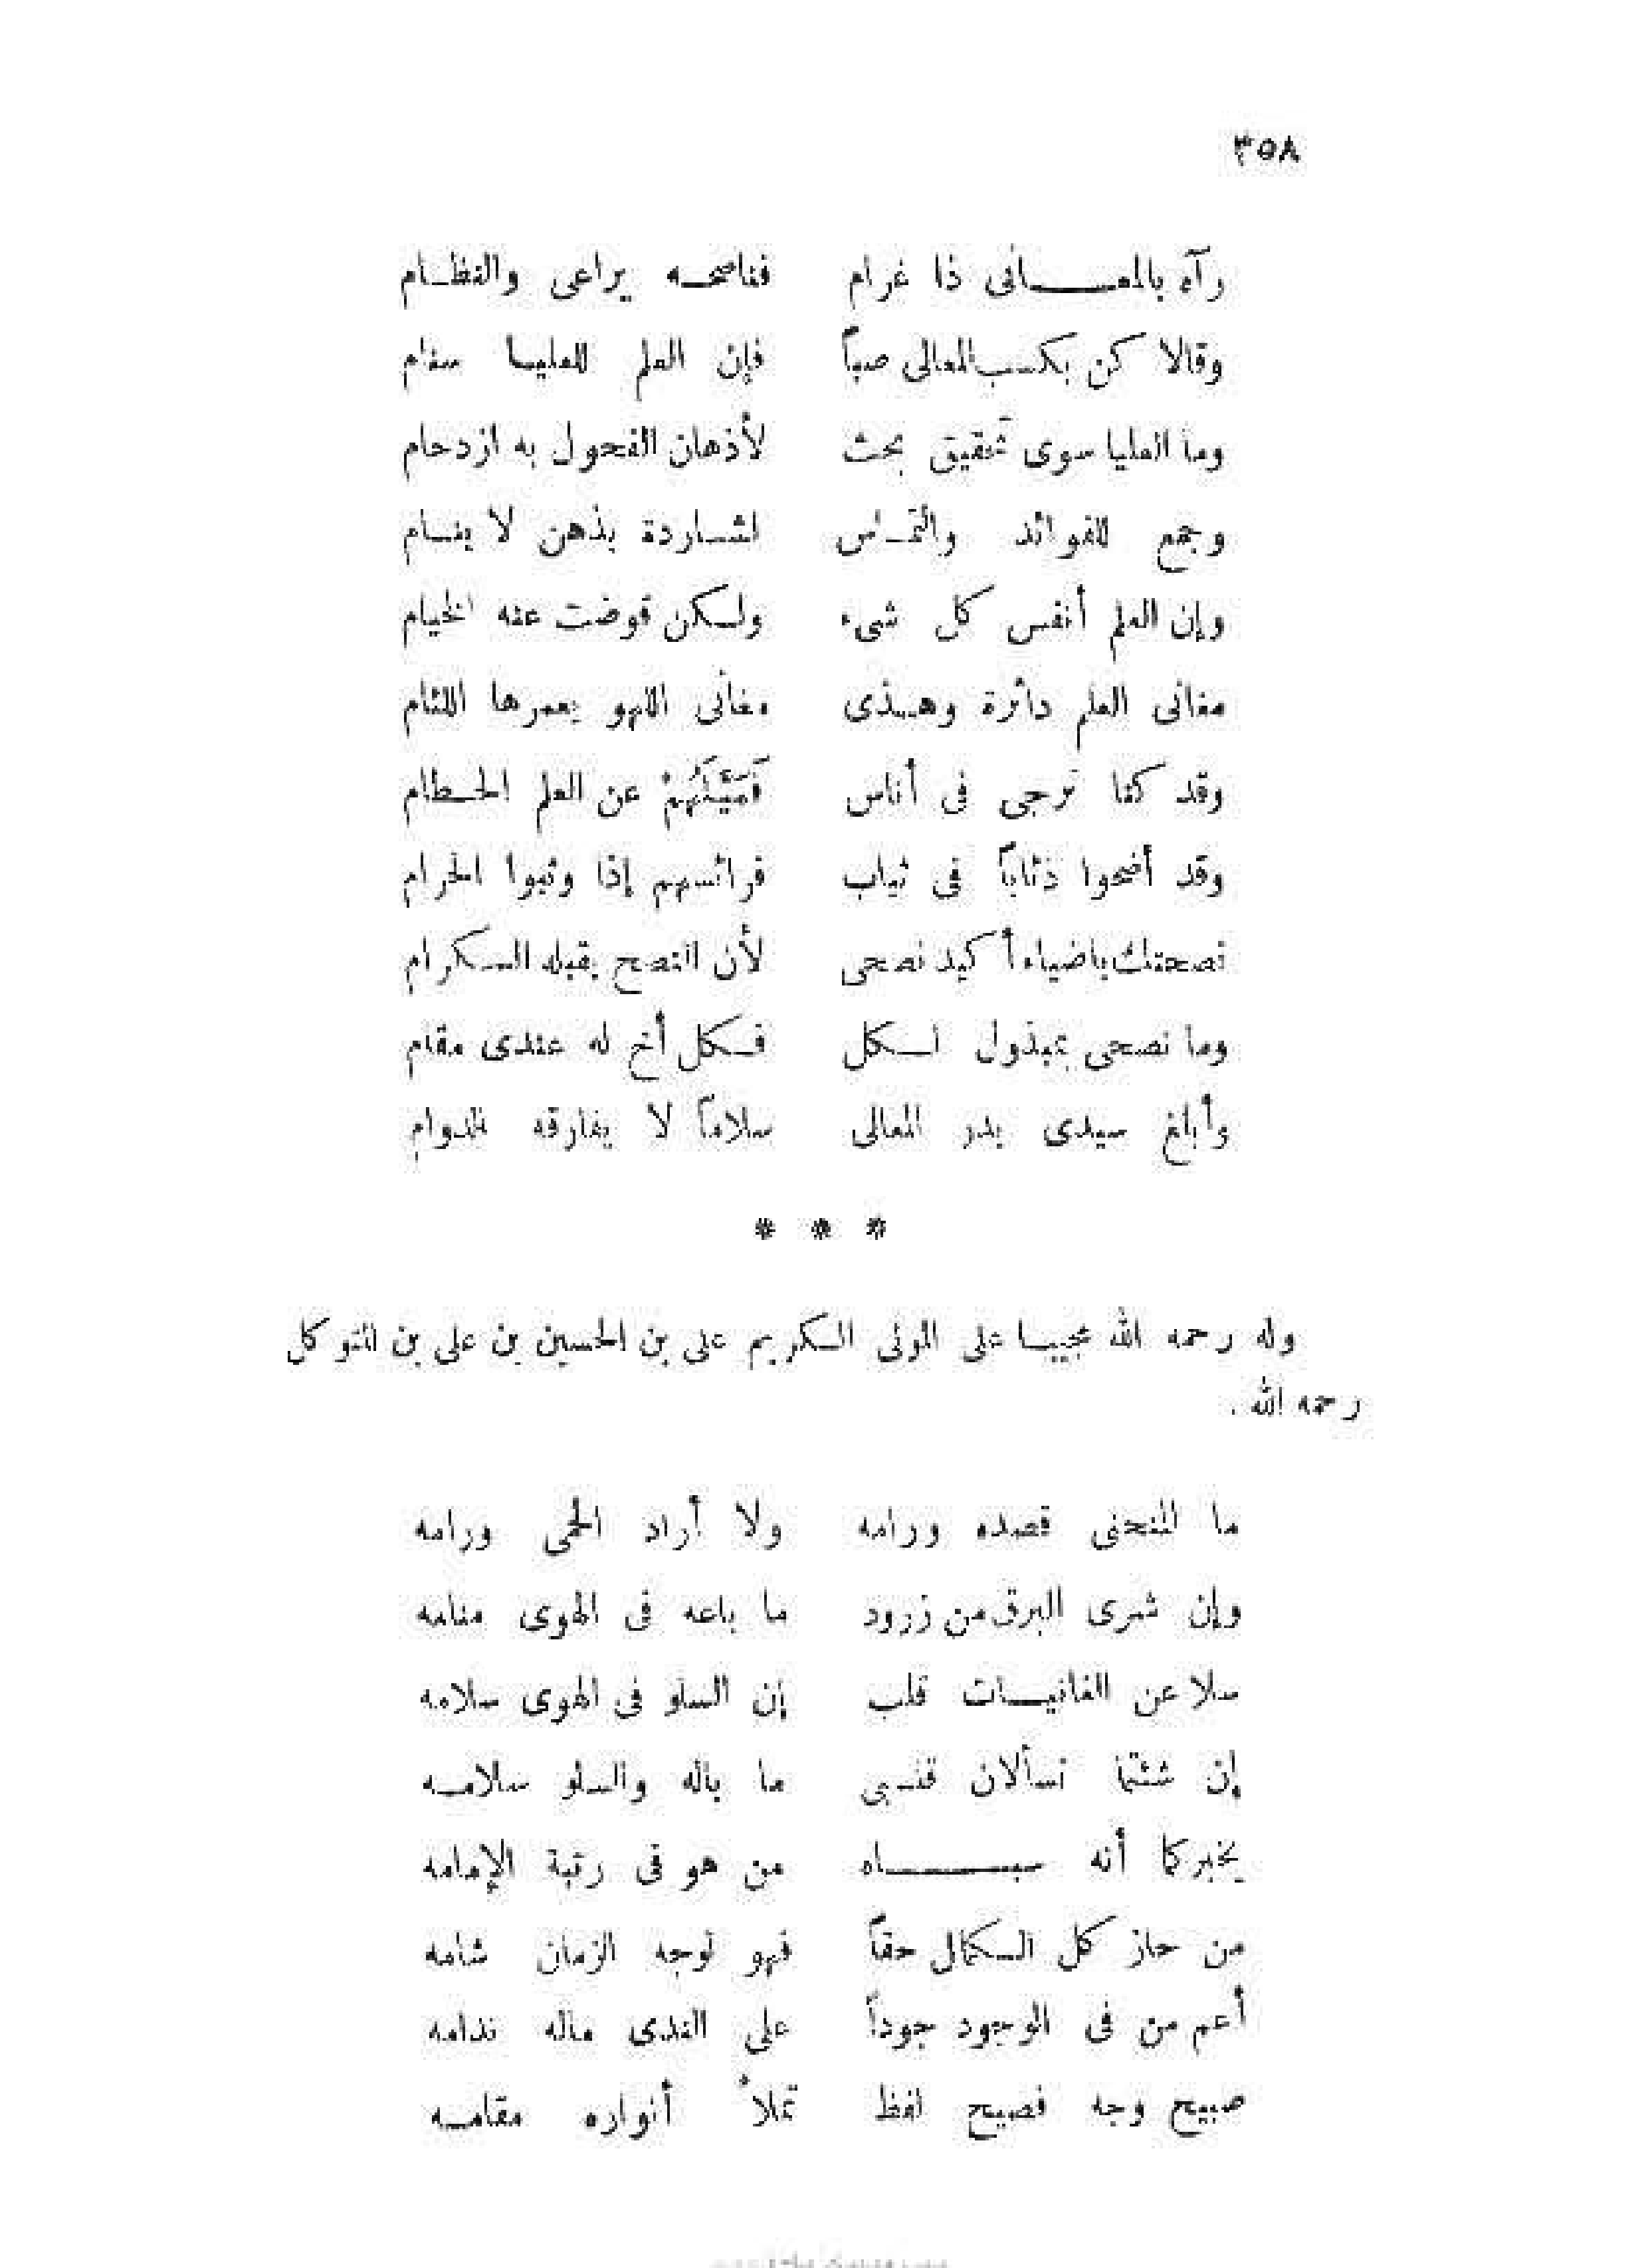 ٣٥٨
رآه بالمعانى ذا غرام فناصحه يراعى والنظام
وقالا كن بكسب المعالى صباً فإن العلم للعليا سنام
وما العليا سوى تحقيق بحث لأذهان الفحول به ازدحام
وجمع للفوائد والتماس لشاردة بذهن لا ينام
وإن العلم أنفس كل شىء ولكن قوضت عنه الخيام
مغانى العلم دائرة وهذى مغانى اللهو يعمرها اللئام
وقد كنا نرجى فى أناس فَمَيَّلَهُمْ عن العلم الحطام
وقد أضحوا ذئاباً فى ثياب فرائسهم إذا وثبوا الحرام
نصحتك ياضياء أكيد نصحى لأن النصح يقبله الكرام
وما نصحى بمبذول لكل فكل أخ له عندى مقام
وأبلغ سيدى بدر المعالى سلاماً لا يفارقه الدوام
* * *
وله رحمه الله مجيبا على المولى الكريم على بن الحسين بن على بن المتوكل
رحمه الله .
ما المنحنى قصده ورامه ولا أراد الحمى ورامه
وإن شرى البرق من زرود ما باعه فى الهوى منامه
سلا عن الغانيات قلب إن السلو فى الهوى سلامه
إن شئتما تسألان قلبى ما باله والسلو سلامه
يخبركما أنه سباه من هو فى رتبة الإمامه
من حاز كل الكمال حقاً فهو لوجه الزمان شامه
أعم من فى الوجود جوداً على الندى ماله ندامه
صبيح وجه فصيح لفظ تملأ أنواره مقامه